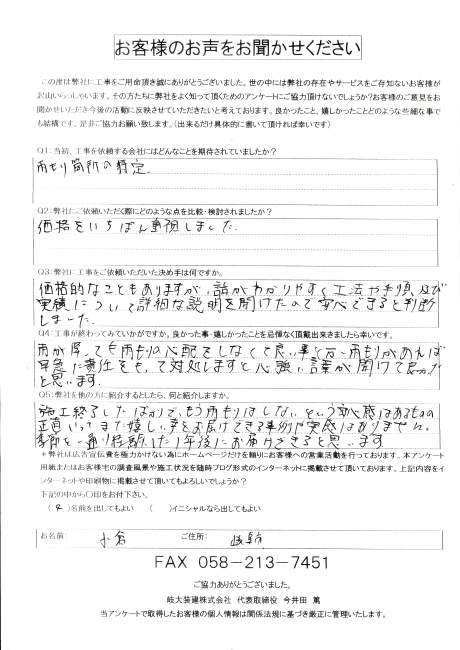 お客様のお声をお聞かせください
この度は弊社に工事をご用命頂き誠にありがとうございました。世の中には弊社の存在やサービスをご存知ないお客様が
沢山いらっしゃいます。その方たちに弊社をよく知って頂くためのアンケートにご協力頂けないでしょうか?お客様のご意見をお
聞かせいただき今後の活動に反映させていただきたいと考えております。良かったこと、嬉しかったことどのような些細な事で
も結構です。是非ご協力お願い致します。(出来るだけ具体的に書いて頂ければ幸いです)
Q1:当初、工事を依頼する会社にはどんなことを期待されていましたか?
雨もり箇所の特定.
Q2:弊社にご依頼いただく際にどのような点を比較・検討されましたか?
価格をいちばん重視しました.
Q3:弊社に工事をご依頼いただいた決め手は何ですか。
価格的なこともありますが、話がわかりやすく工法や手順、及び
実績について詳細な説明を聞けたので安心できると判断
しました.
Q4:工事が終わってみていかがですか。良かった事・嬉しかったことを忌憚なく頂戴出来きましたら幸いです。
雨が降っても雨もりの心配をしなくて良い事と万一雨もりがあれば
早急に責任をもって対処しますと心強い言葉が聞けて良かった
と思います.
Q5:弊社を他の方に紹介するとしたら、何と紹介しますか。
施工終了したばかりで、もう雨もりはしないという安心感はあるものの
正直いってまだ嬉しい声をお届けできる事例や実感はありません。
季節を一通り経験した1年後にお届けできると思います
*弊社は広告宣伝費を極力かけない為にホームページだけを頼りにお客様への営業活動を行っております。本アンケート
用紙またはお客様宅の調査風景や施工状況を随時ブログ形式のインターネットに掲載させて頂いております。上記内容をイ
ンターネットや印刷物に掲載させて頂いてもよろしいでしょうか?
下記の中から○印をお付下さい。
( )名前を出してもよい ( )イニシャルなら出してもよい
お名前: 小倉 ご住所: 岐阜市
FAX 058-213-7451
ご協力ありがとうございました。
岐大装建株式会社 代表取締役 今井田 篤
当アンケートで取得したお客様の個人情報は関係法規に基づき厳正に管理いたします。